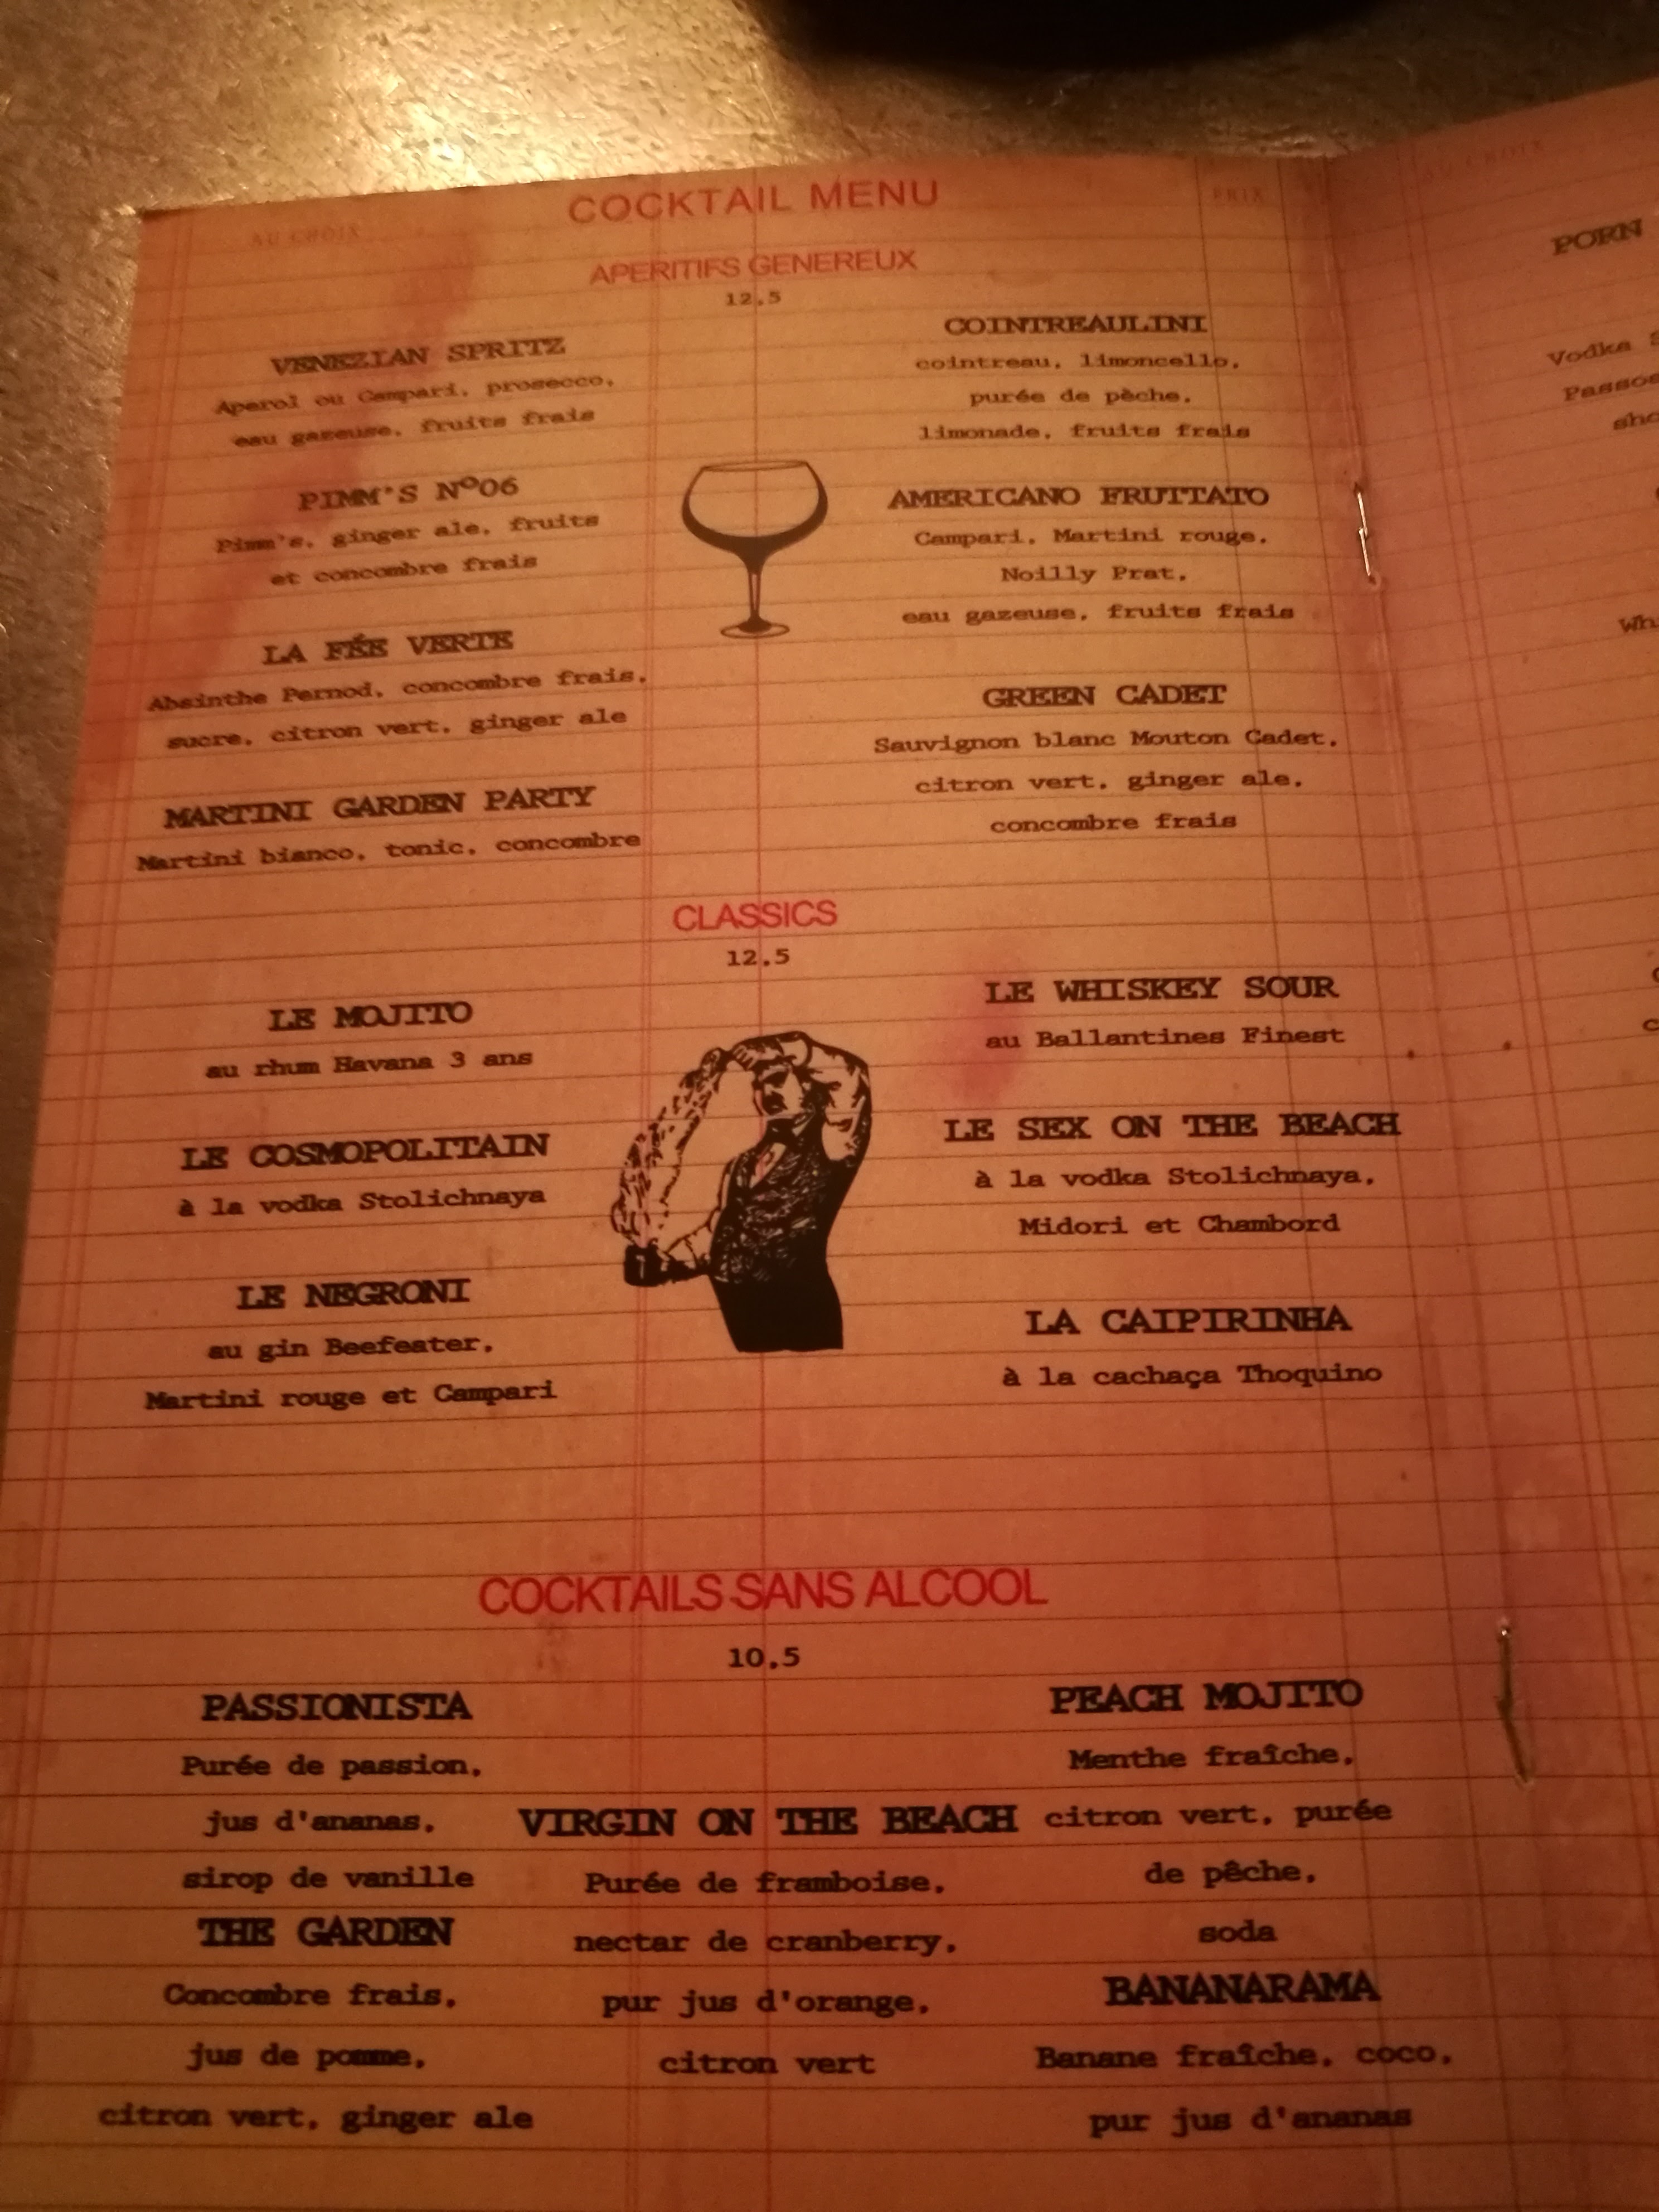 AU CHOIX
COCKTAIL MENU
PRIX
APERITIFS GENEREUX
12,5
VENEZIAN SPRITZ
Aperol ou Campari, prosecco,
eau gazeuse, fruits frais
PIMM'S Nº06
Pimm's, ginger ale, fruits
et concombre frais
LA FÉE VERTE
Absinthe Pernod, concombre frais,
sucre, citron vert, ginger ale
MARTINI GARDEN PARTY
Martini bianco, tonic, concombre
COINTREAULINI
cointreau, limoncello,
purée de pèche,
limonade, fruits frais
AMERICANO FRUTTATO
Campari, Martini rouge,
Noilly Prat,
eau gazeuse, fruits frais
GREEN CADET
Sauvignon blanc Mouton Cadet,
citron vert, ginger ale,
concombre frais
CLASSICS
12,5
LE MOJITO
au rhum Havana 3 ans
LE COSMOPOLITAIN
à la vodka Stolichnaya
LE NEGRONI
au gin Beefeater,
Martini rouge et Campari
LE WHISKEY SOUR
au Ballantines Finest
LE SEX ON THE BEACH
à la vodka Stolichnaya,
Midori et Chambord
LA CAIPIRINHA
à la cachaça Thoquino
COCKTAILS SANS ALCOOL
10,5
PASSIONISTA
Purée de passion,
jus d'ananas,
sirop de vanille
THE GARDEN
Concombre frais,
jus de pomme,
citron vert, ginger ale
VIRGIN ON THE BEACH
Purée de framboise,
nectar de cranberry,
pur jus d'orange,
citron vert
PEACH MOJITO
Menthe fraîche,
citron vert, purée
de pêche,
soda
BANANARAMA
Banane fraîche, coco,
pur jus d'ananas
AU CHOIX
PORN
Vodka